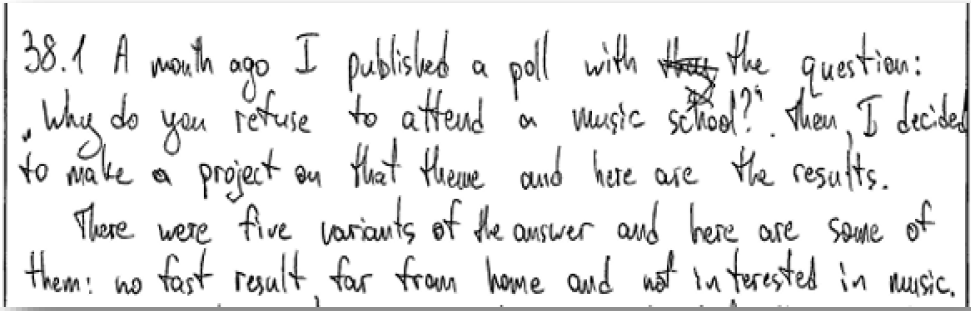 38.1 A month ago I published a poll with the question:
„Why do you refuse to attend a music school?“. Then, I decided
to make a project on that theme and here are the results.
There were five variants of the answer and here are some of
them: no fast result, far from home and not interested in music.